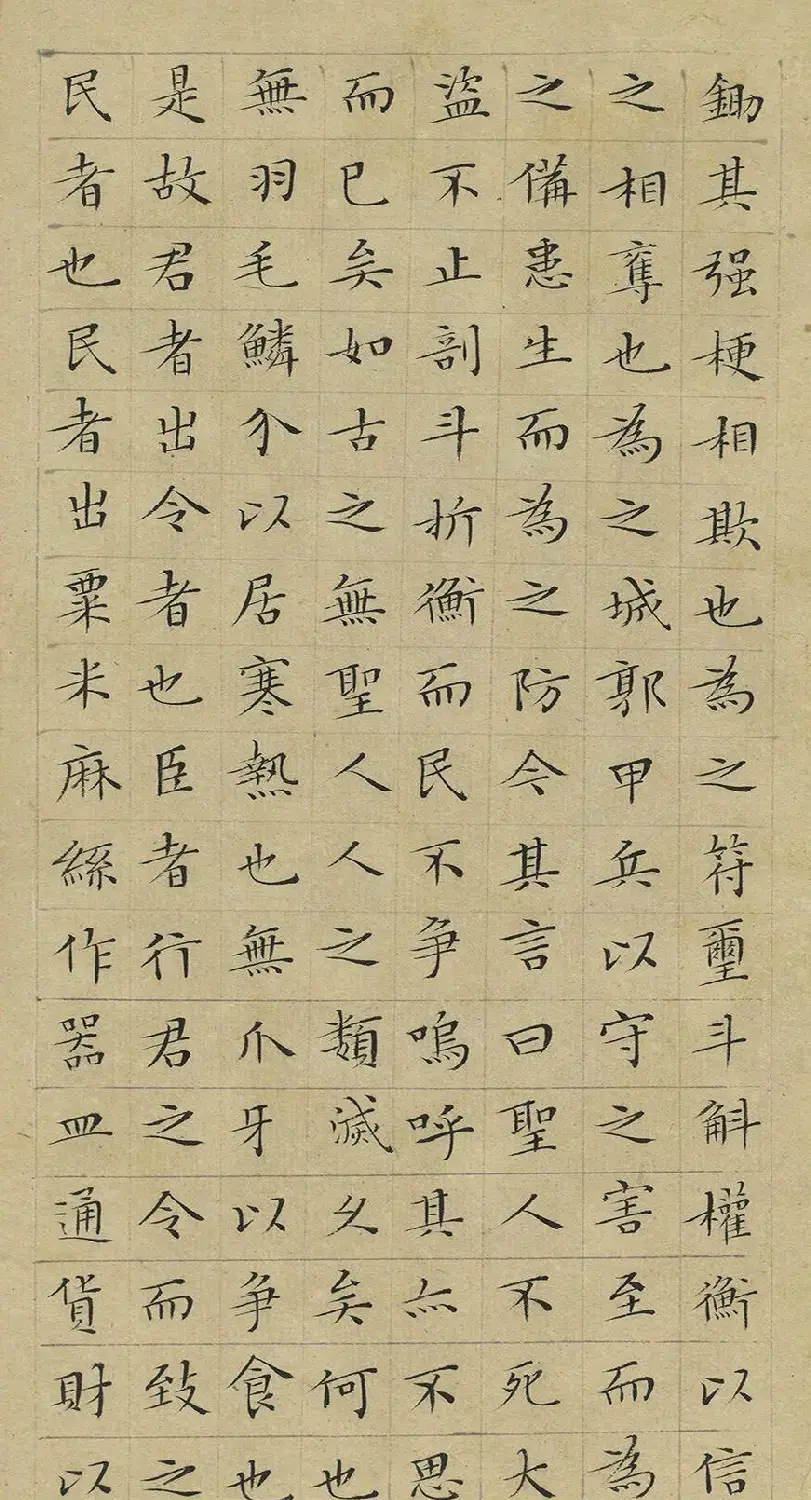 鋤其强梗相欺也為之符璽斗斛權衡以信
之相奪也為之城郭甲兵以守之害至而為
之備患生而為之防今其言曰聖人不死大
盜不止剖斗折衡而民不争嗚呼其亦不思
而已矣如古之無聖人人之類滅久矣何也
無羽毛鱗介以居寒熱也無爪牙以争食也
是故君者出令者也臣者行君之令而致之
民者也民者出粟米麻絲作器皿通貨財以